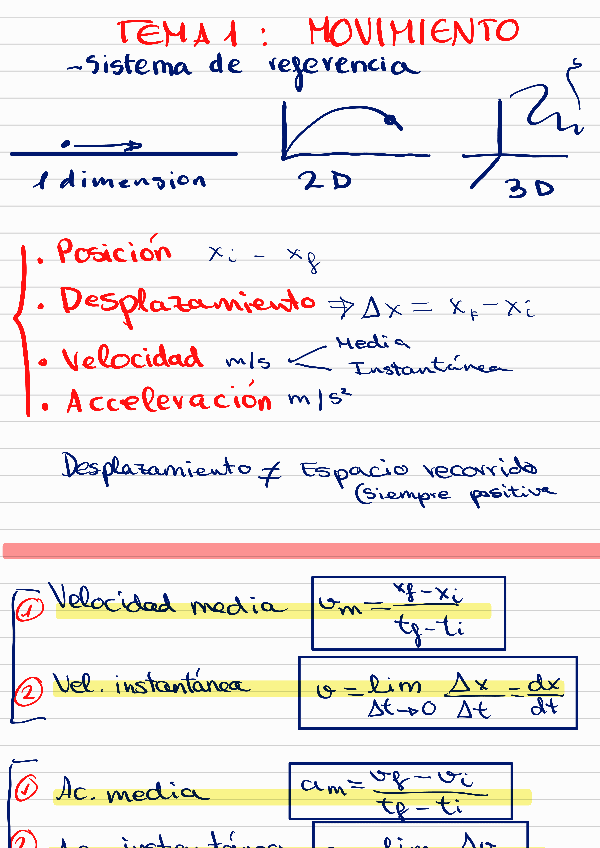 TEMA 1 : MOVIMIENTO
~Sistema de referencia
1 dimension
2D
3D
• Posición xi - xf
• Desplazamiento ⇒ Δx = xf - xi
• Velocidad m/s Media
Instantánea
• Acceleración m/s²
Desplazamiento ≠ Espacio recorrido
(siempre positiva
① Velocidad media vm = xf - xi / tf - ti
② Vel. instantánea v = lim Δt→0 Δx/Δt = dx/dt
① Ac. media am = vf - vi / tf - ti
② Ac. instantánea lim Δv